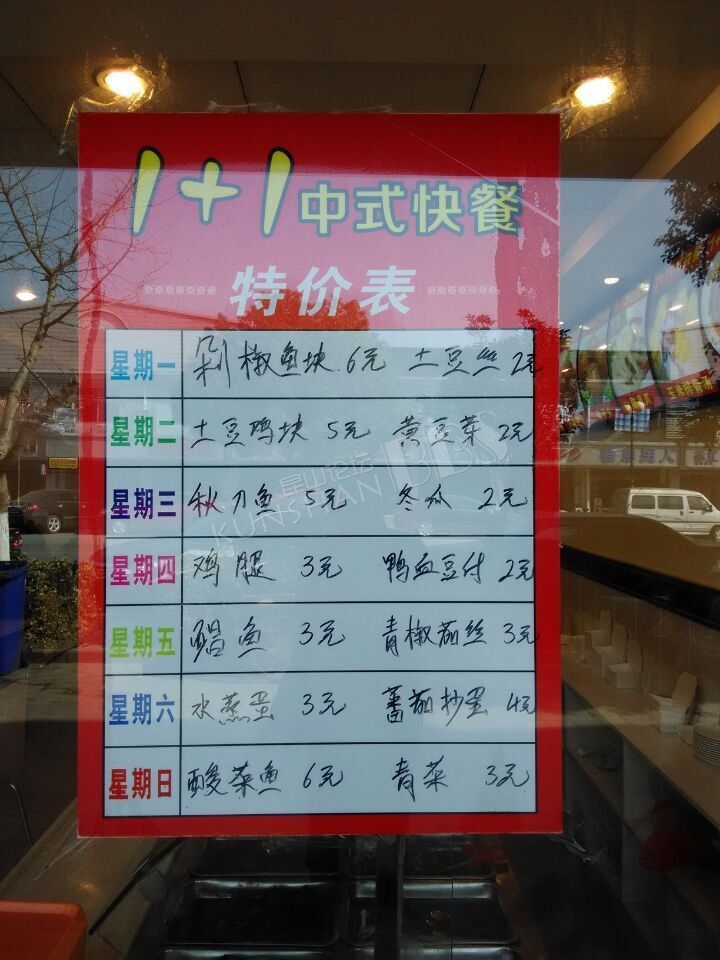 1+1中式快餐
※※※※※※※特价表※※※※※※※
星期一 剁椒鱼块 6元 土豆丝 2元
星期二 土豆鸡块 5元 黄豆芽 2元
昆山论坛
KUNSHAN BBS
星期三 秋刀鱼 5元 冬瓜 2元
星期四 鸡腿 3元 鸭血豆付 2元
星期五 鲳鱼 3元 青椒茄丝 3元
星期六 水蒸蛋 3元 蕃茄抄蛋 4元
星期日 酸菜鱼 6元 青菜 3元